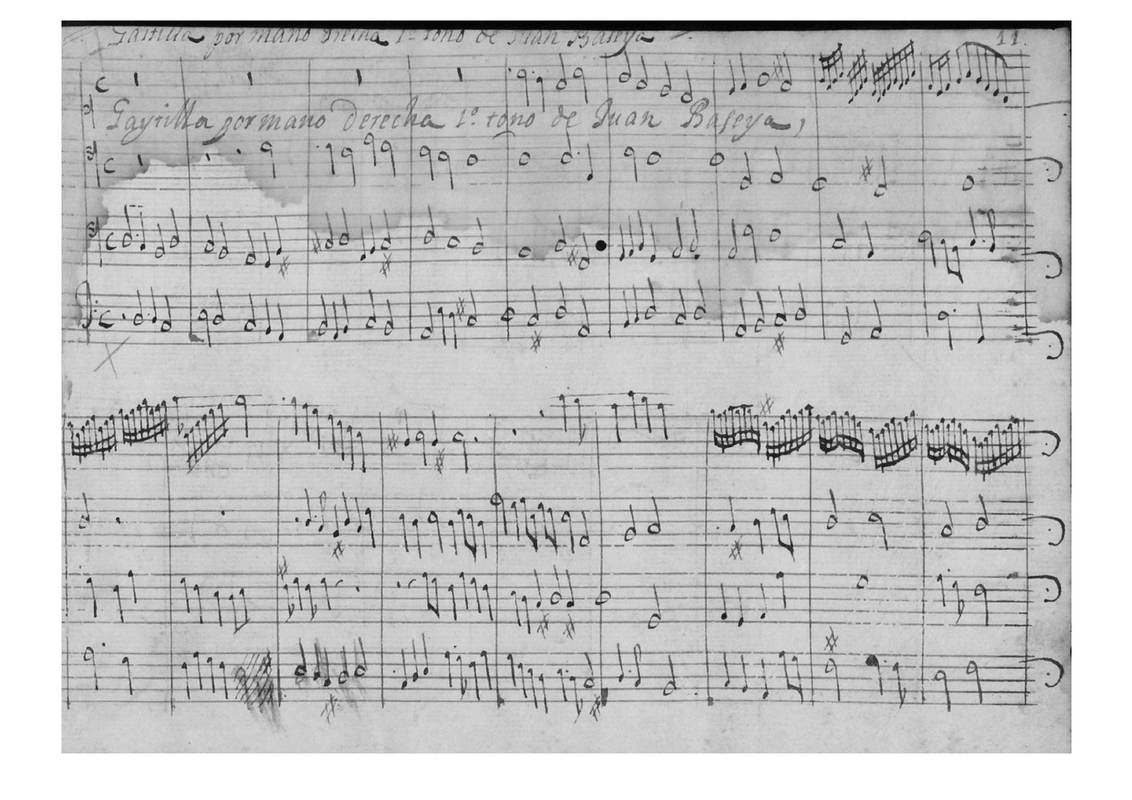 Gaitilla por mano drecha 1º tono de Juan Baseya
11.
Gaytilla por mano derecha 1º. tono de Juan Baseya,